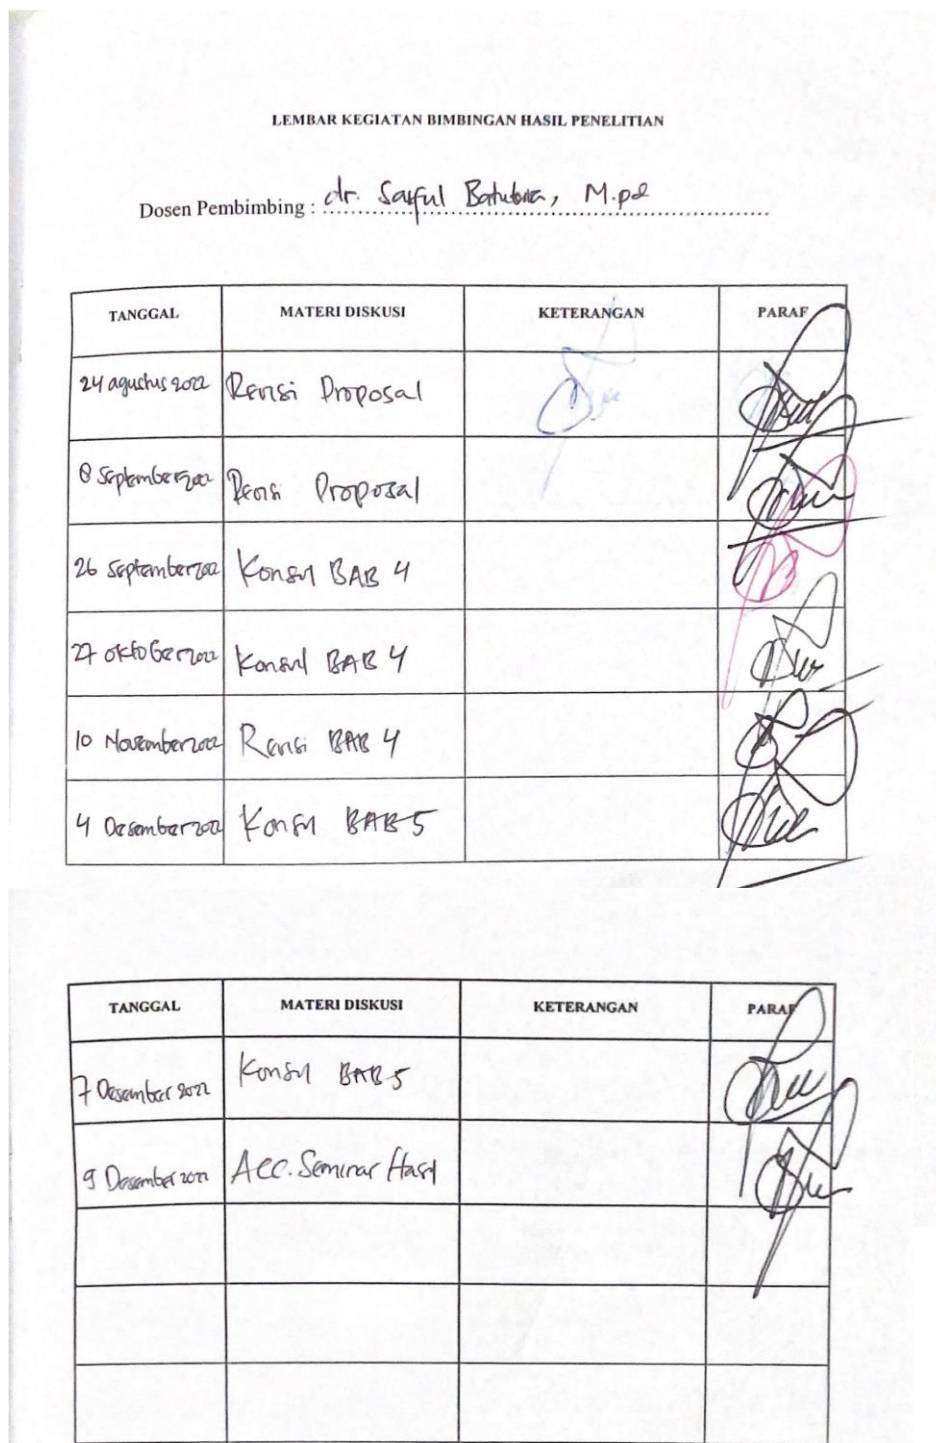 LEMBAR KEGIATAN BIMBINGAN HASIL PENELITIAN
Dosen Pembimbing : dr. Saiful Batubara, M.pd
TANGGAL MATERI DISKUSI KETERANGAN PARAF
24 agustus 2022 Revisi Proposal
8 September 2022 Revisi Proposal
26 September 2022 Konsul BAB 4
27 oktober 2022 Konsul BAB 4
10 November 2022 Revisi BAB 4
4 Desember 2022 Konsul BAB 5
TANGGAL MATERI DISKUSI KETERANGAN PARAF
7 Desember 2022 Konsul BAB 5
9 Desember 2022 Acc. Seminar Hasil